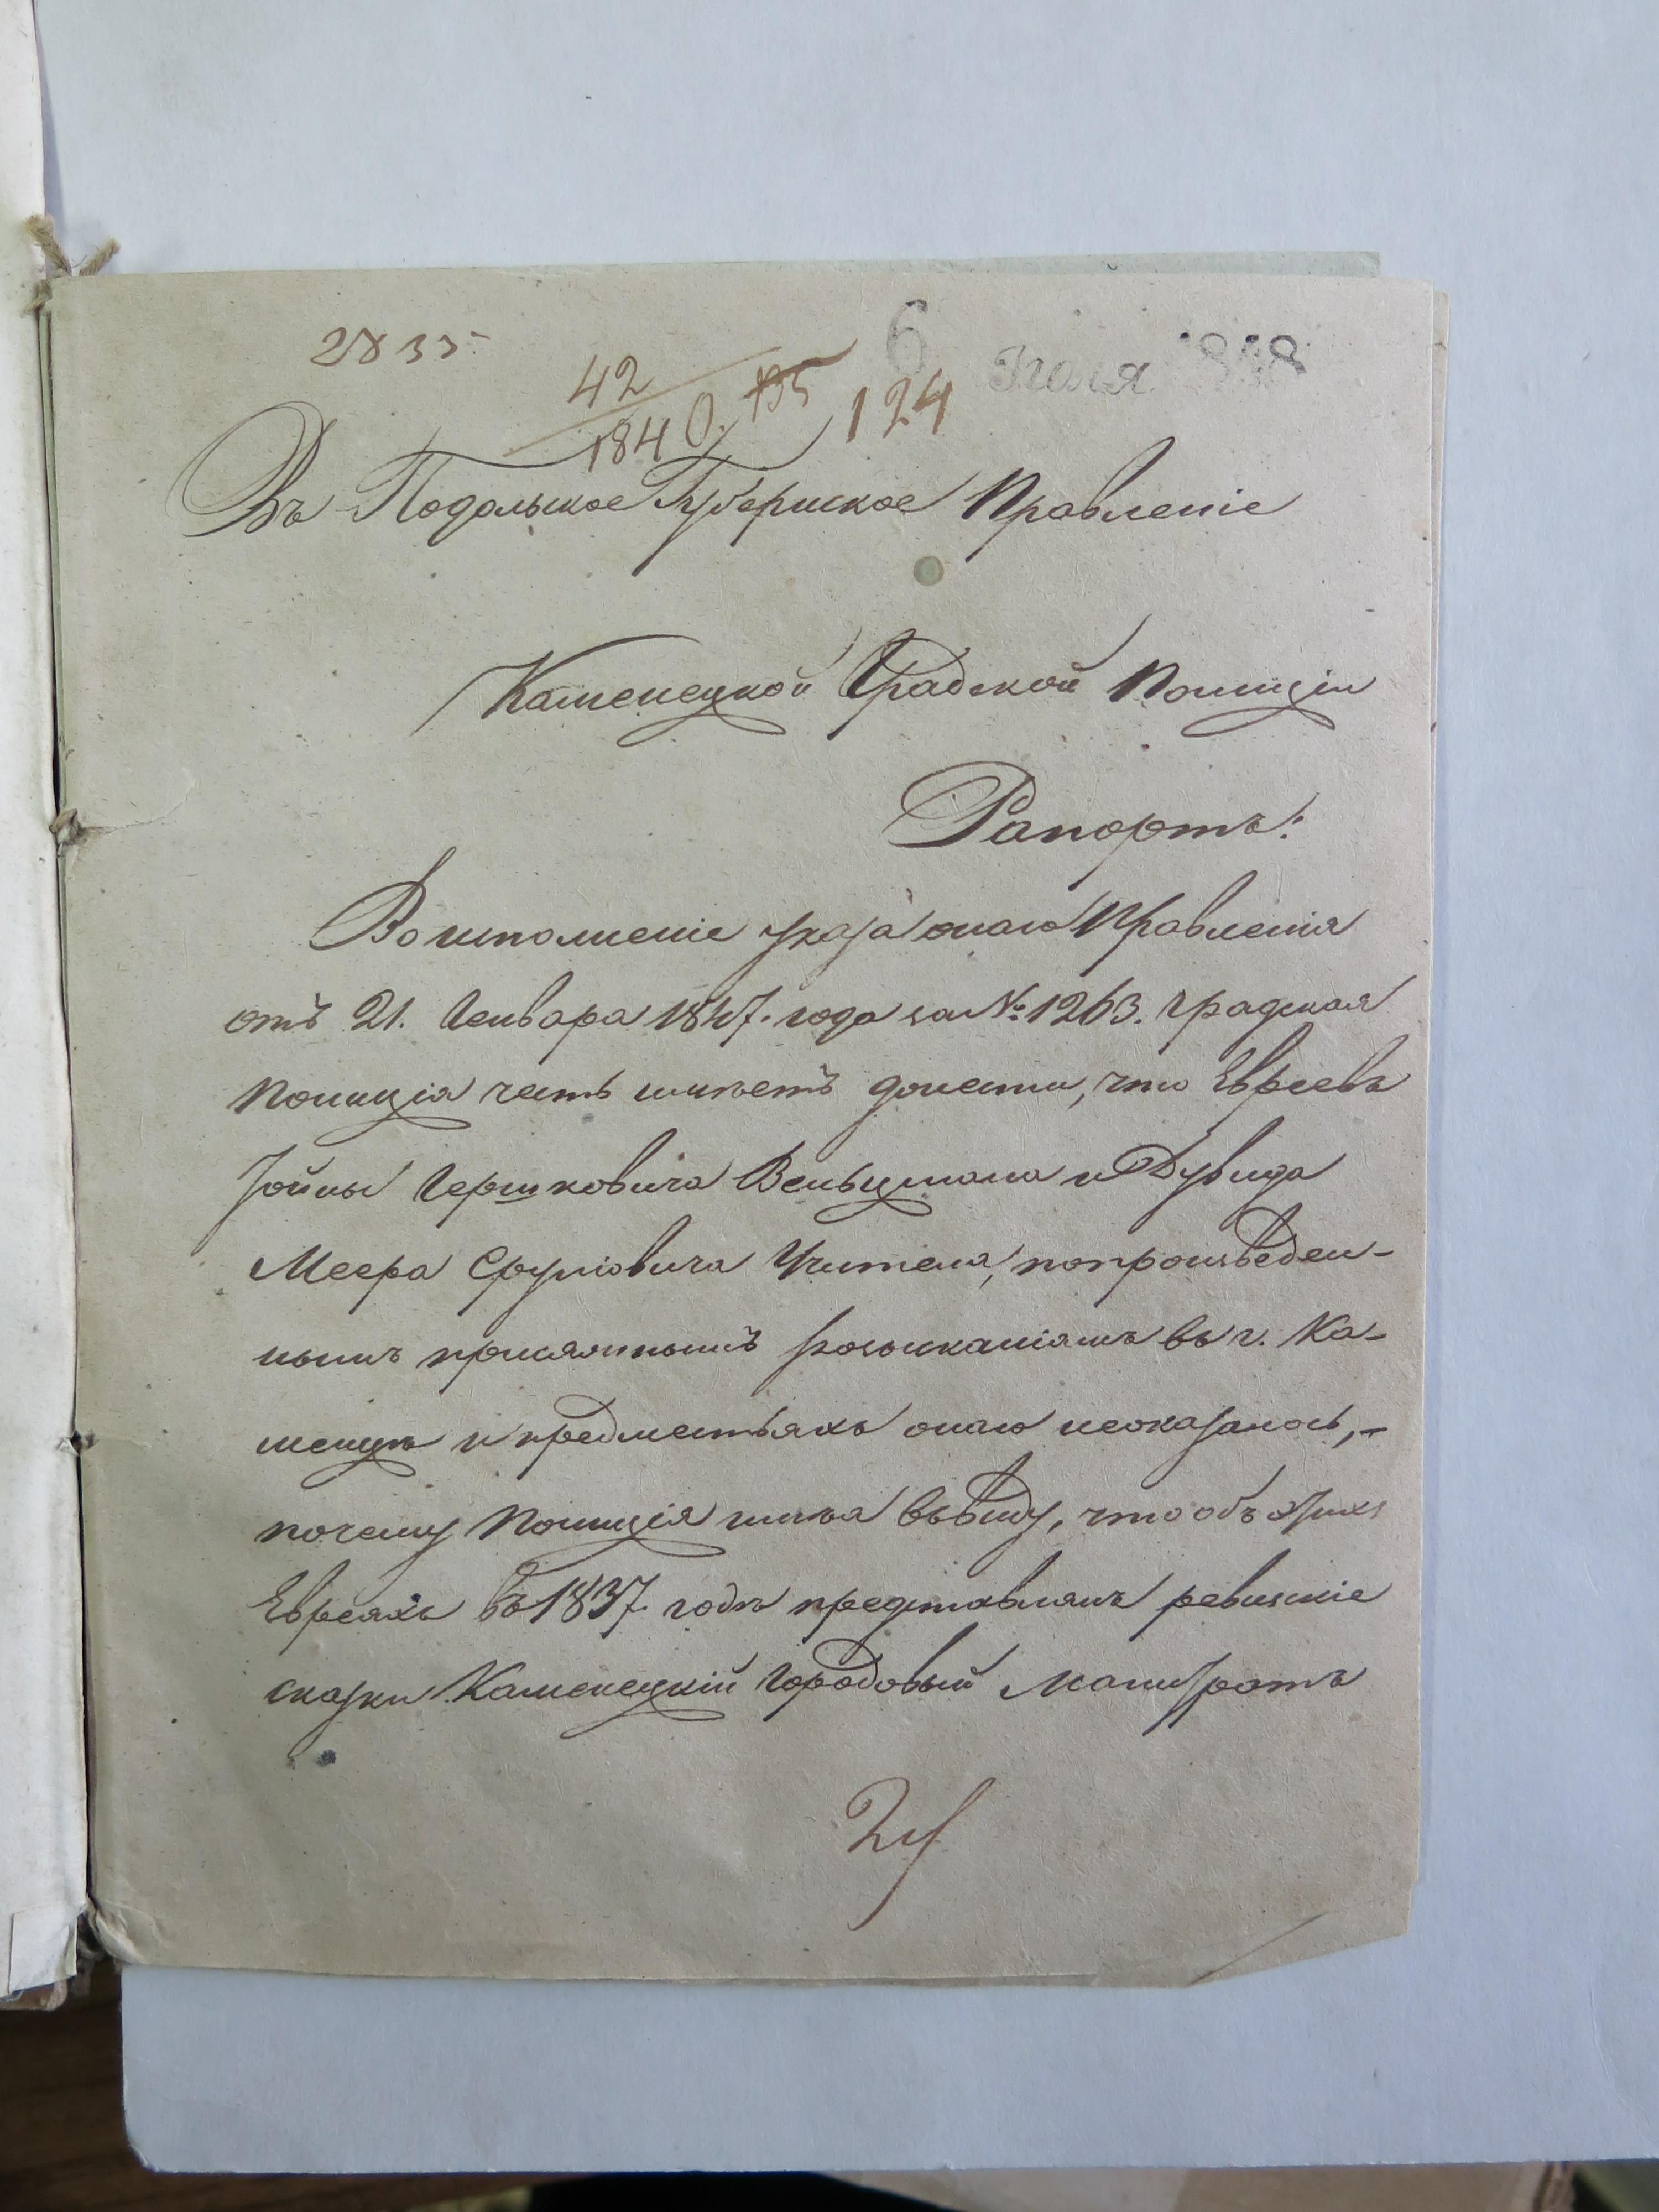 2833
6 Июля 1848
42
1840. 135 124
Въ Подольское Губернское Правленіе
Каменецкой Градской Полиціи
Рапортъ:
Во исполненіе указа онаго Правленія
отъ 21. Генваря 1847. года за № 1263. Градская
Полиція честь имѣетъ донести, что Евреевъ
Іойны Гершковича Вельцмана и Дувида
Меера Сруліовича Учителя, по произведен-
нымъ присяжнымъ розысканіямъ въ г. Ка-
менцѣ и предмѣстьяхъ онаго неоказалось,-
почему Полиція имѣя въ виду, что объ этихъ
Евреяхъ въ 1837. годѣ представлялъ ревизскіе
сказки Каменецкій Городовый Магистратъ